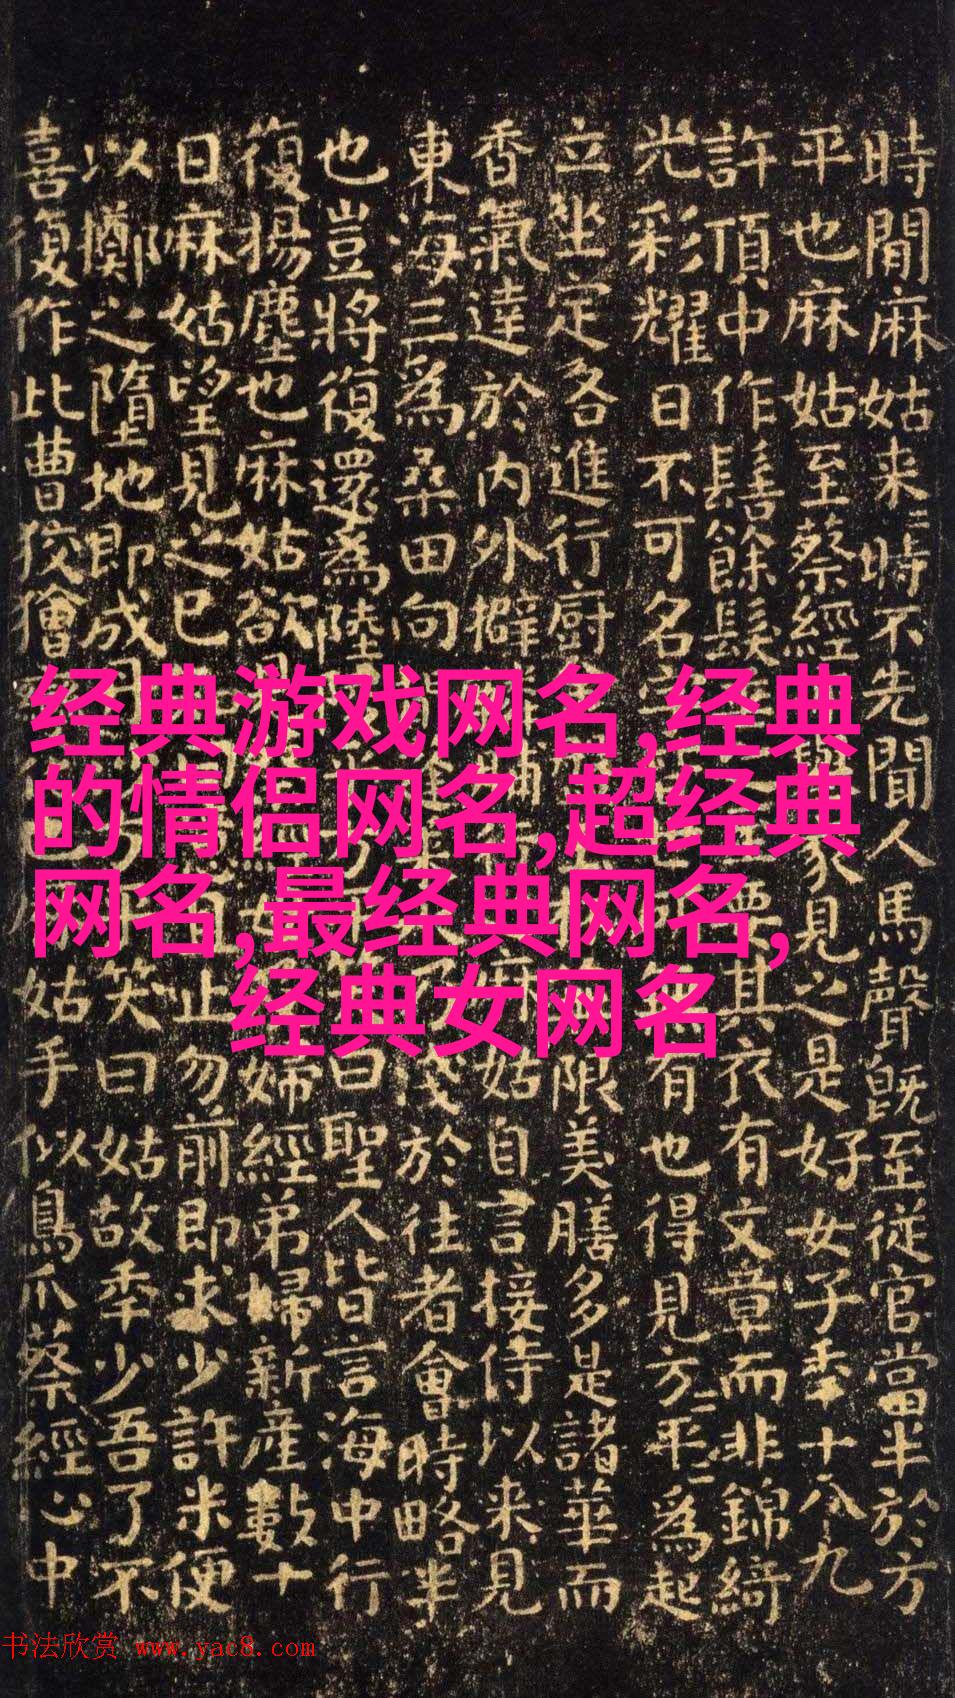 時間麻姑来＝時不先聞人馬聲既至從官當半於方
平也麻姑至蔡經家見之是好女子秊十八九
許頂中作髻餘髮其衣有文章而非錦綺
光彩耀日不可名有也得見方＝平＝為起
立坐定各進行廚限美膳多是諸華而
香氣達於内外擗姑自言接侍以来見
東海三為桑田向淺於往者會時略半
也豈將復還為陸曰聖人皆言海中行
復揚塵也麻姑欲婦經弟婦新産數十
日麻姑望見之已止勿前即求少許米便
以擲之墮地即成笑曰姑故秊少吾了不
喜復作此曹狡獪姑手似鳥爪蔡經心中
经典游戏网名,经典
的情侣网名,超经典
网名,最经典网名,
经典女网名
书法欣赏 www.yac8.com